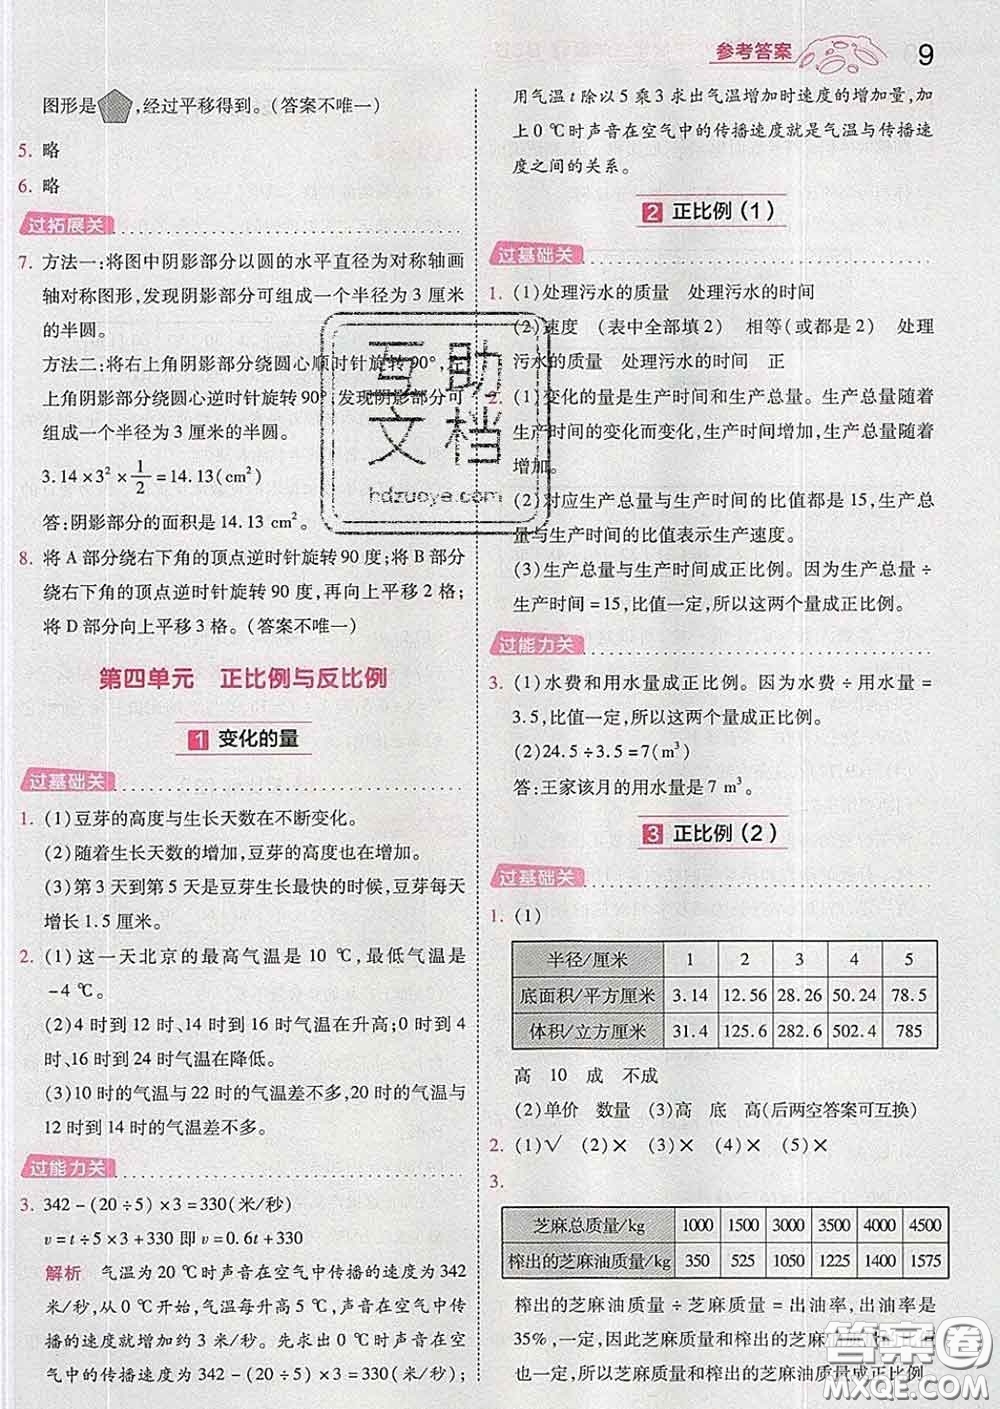 参考答案 9
图形是 ,经过平移得到。(答案不唯一)
5. 略
6. 略
过拓展关
7. 方法一:将图中阴影部分以圆的水平直径为对称轴画
轴对称图形,发现阴影部分可组成一个半径为 3 厘米
的半圆。
方法二:将右上角阴影部分绕圆心顺时针旋转 90°,
上角阴影部分绕圆心逆时针旋转 90°,发现阴影部分可
组成一个半径为 3 厘米的半圆。
3.14×3²×1/2=14.13(cm²)
答:阴影部分的面积是 14.13 cm²。
8. 将 A 部分绕右下角的顶点逆时针旋转 90 度;将 B 部分
绕右下角的顶点逆时针旋转 90 度,再向上平移 2 格;
将 D 部分向上平移 3 格。(答案不唯一)
第四单元 正比例与反比例
1 变化的量
过基础关
1. (1)豆芽的高度与生长天数在不断变化。
(2)随着生长天数的增加,豆芽的高度也在增加。
(3)第 3 天到第 5 天是豆芽生长最快的时候,豆芽每天
增长 1.5 厘米。
2. (1)这一天北京的最高气温是 10 ℃,最低气温是
-4 ℃。
(2)4 时到 12 时、14 时到 16 时气温在升高;0 时到 4
时、16 时到 24 时气温在降低。
(3)10 时的气温与 22 时的气温差不多,20 时的气温与
12 时到 14 时的气温差不多。
过能力关
3. 342-(20÷5)×3=330(米/秒)
v=t÷5×3+330 即 v=0.6t+330
解析 气温为 20 ℃时声音在空气中传播的速度为 342
米/秒,从 0 ℃开始,气温每升高 5 ℃,声音在空气中传
播的速度就增加约 3 米/秒。先求出 0 ℃时声音在空
气中的传播速度为 342-(20÷5)×3=330(米/秒);
用气温 t 除以 5 乘 3 求出气温增加时速度的增加量,加
上 0 ℃时声音在空气中的传播速度就是气温与传播速
度之间的关系。
2 正比例(1)
过基础关
1. (1)处理污水的质量 处理污水的时间
(2)速度 (表中全部填 2) 相等(或都是 2) 处理
污水的质量 处理污水的时间 正
2. (1)变化的量是生产时间和生产总量。生产总量随着
生产时间的变化而变化,生产时间增加,生产总量也
增加。
(2)对应生产总量与生产时间的比值都是 15,生产总
量与生产时间的比值表示生产速度。
(3)生产总量与生产时间成正比例。因为生产总量÷
生产时间=15,比值一定,所以这两个量成正比例。
过能力关
3. (1)水费和用水量成正比例。因为水费÷用水量=
3.5,比值一定,所以这两个量成正比例。
(2)24.5÷3.5=7(m³)
答:王家该月的用水量是 7 m³。
3 正比例(2)
过基础关
1. (1)
半径/厘米 1 2 3 4 5
底面积/平方厘米 3.14 12.56 28.26 50.24 78.5
体积/立方厘米 31.4 125.6 282.6 502.4 785
高 10 成 不成
(2)单价 数量 (3)高 底 高(后两空答案可互换)
2. (1)√ (2)× (3)× (4)× (5)×
3.
芝麻总质量/kg 1000 1500 3000 3500 4000 4500
榨出的芝麻油质量/kg 350 525 1050 1225 1400 1575
榨出的芝麻油质量÷芝麻总质量=出油率,出油率是
35%,一定,因此芝麻质量和榨出的芝麻油质量的比值
也一定,所以芝麻质量和榨出的芝麻油质量成正比例
互助
文档
hdzuoye.com
答案圈
MXQE.COM